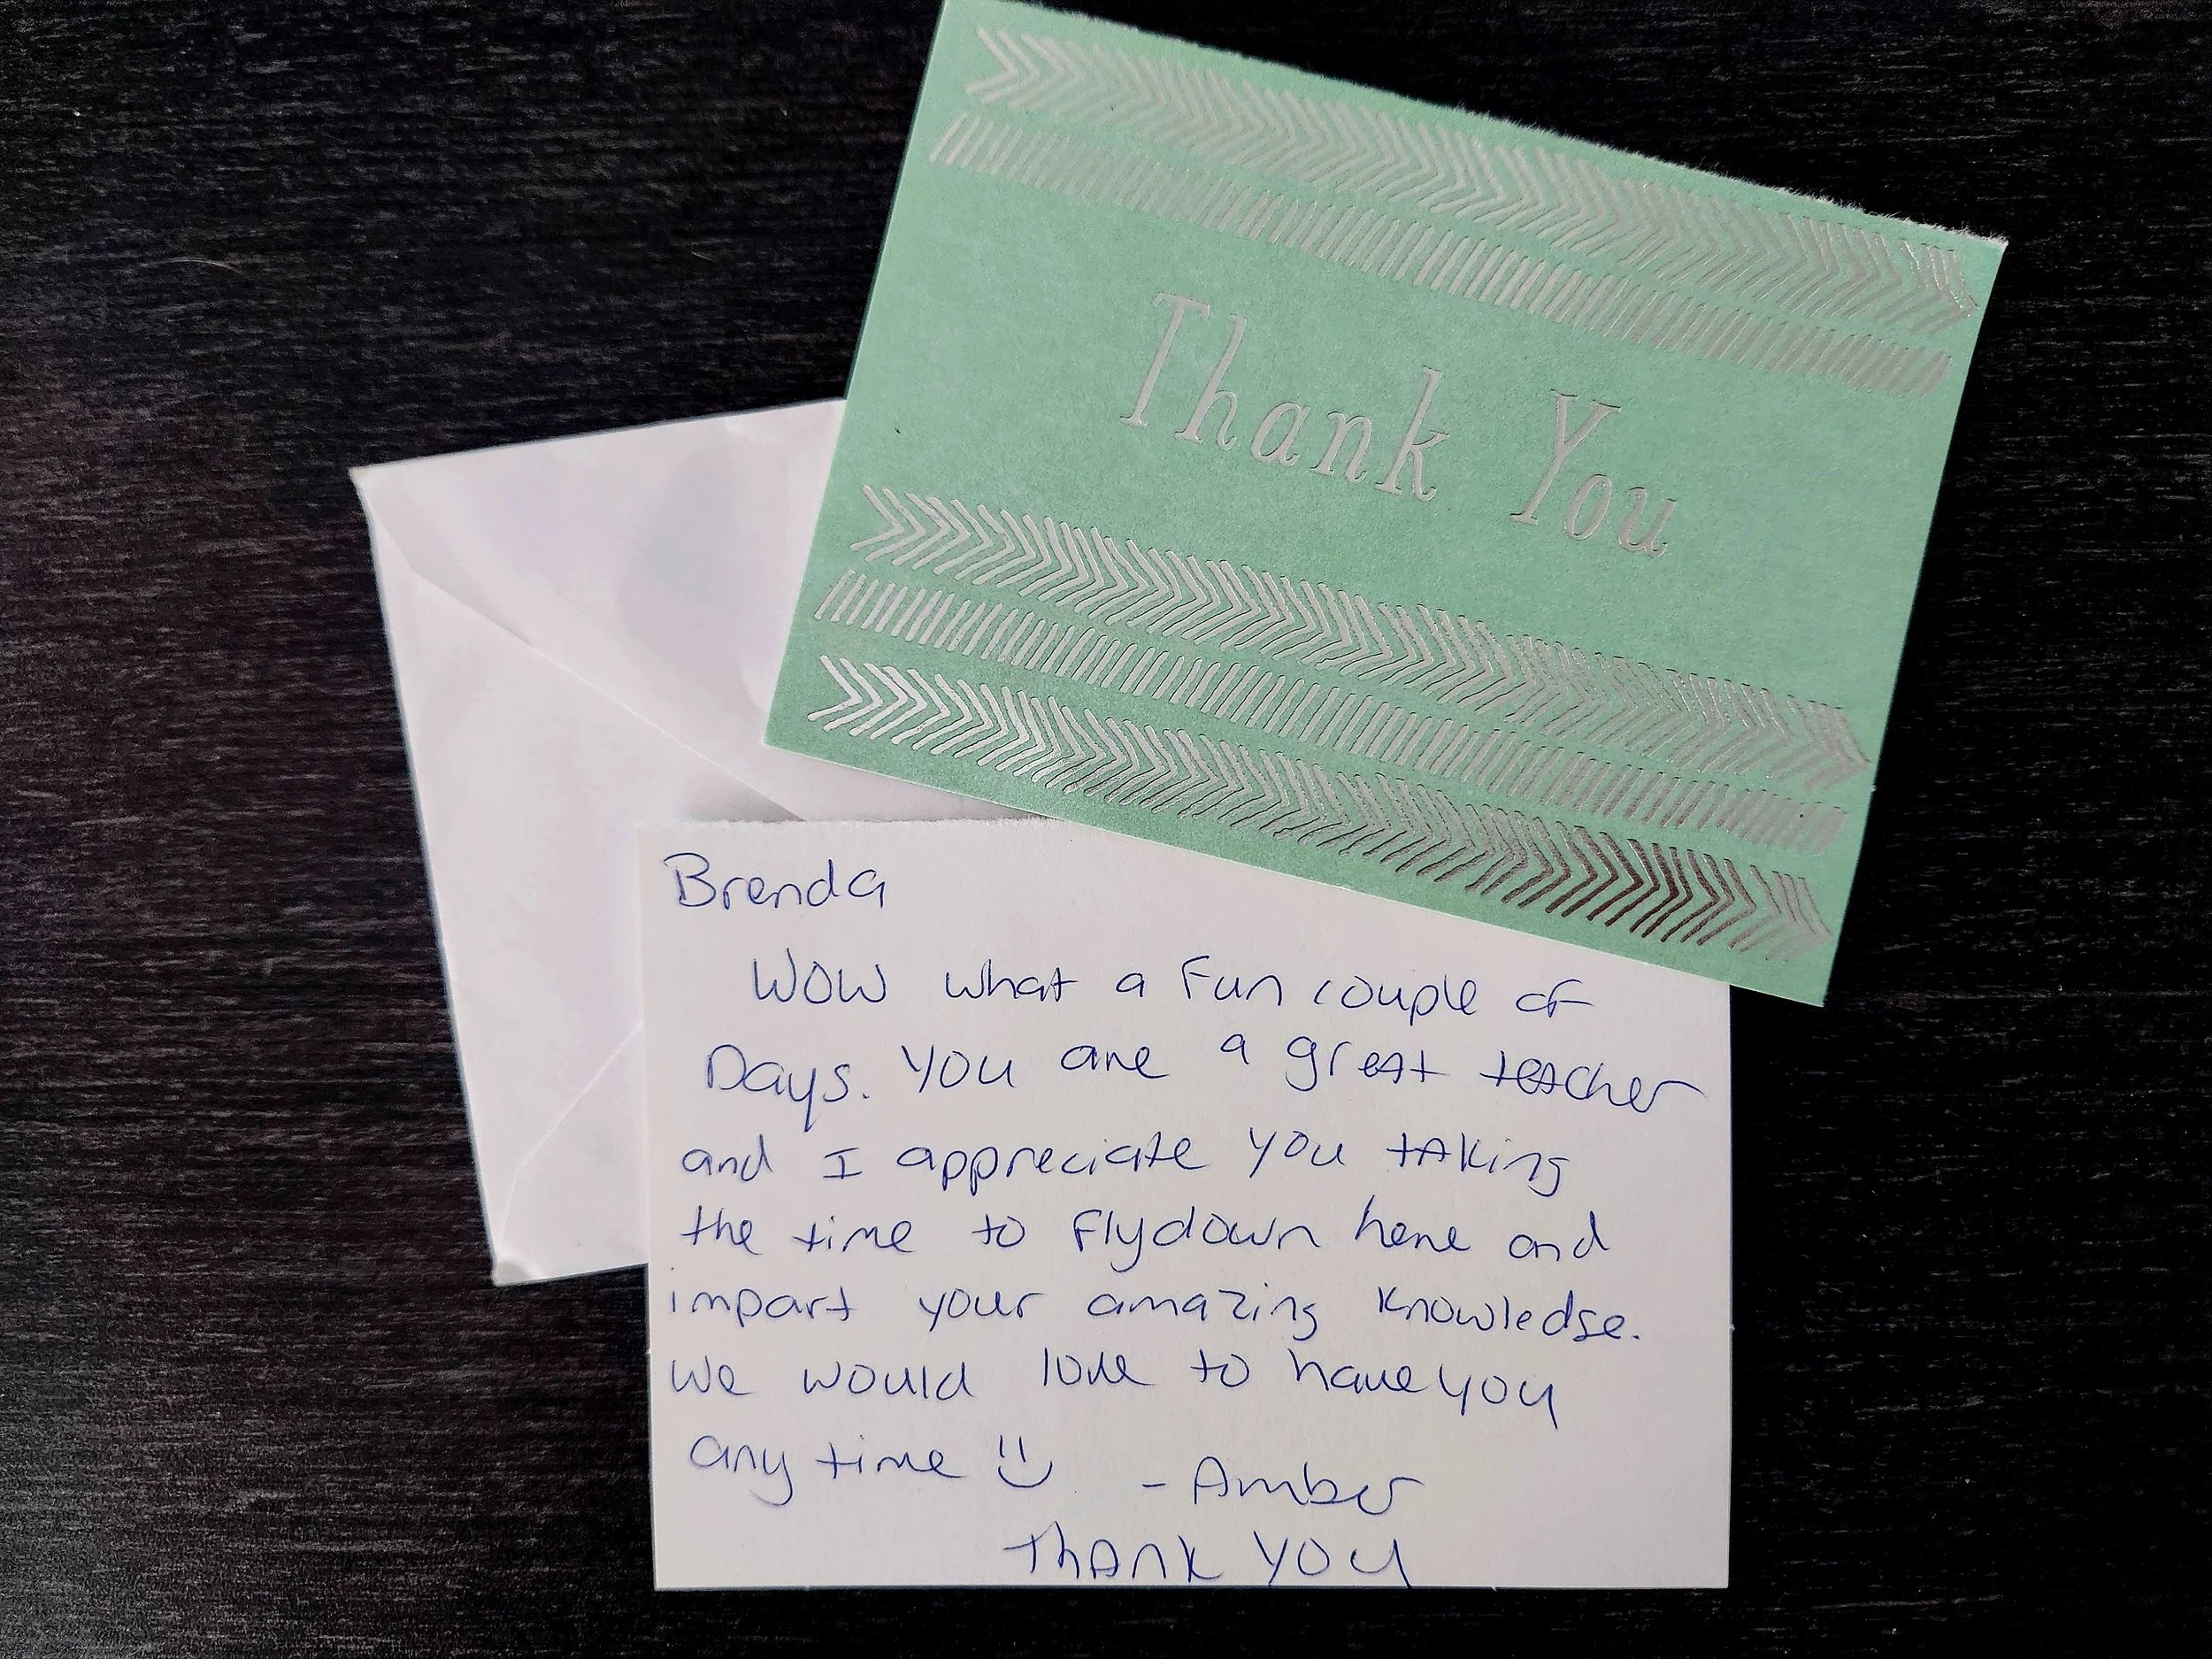 Thank You
Brenda
WOW what a fun couple of
Days. You are a great teacher
and I appreciate you taking
the time to fly down here and
impart your amazing knowledge.
We would love to have you
any time
- Amber
THANK YOU